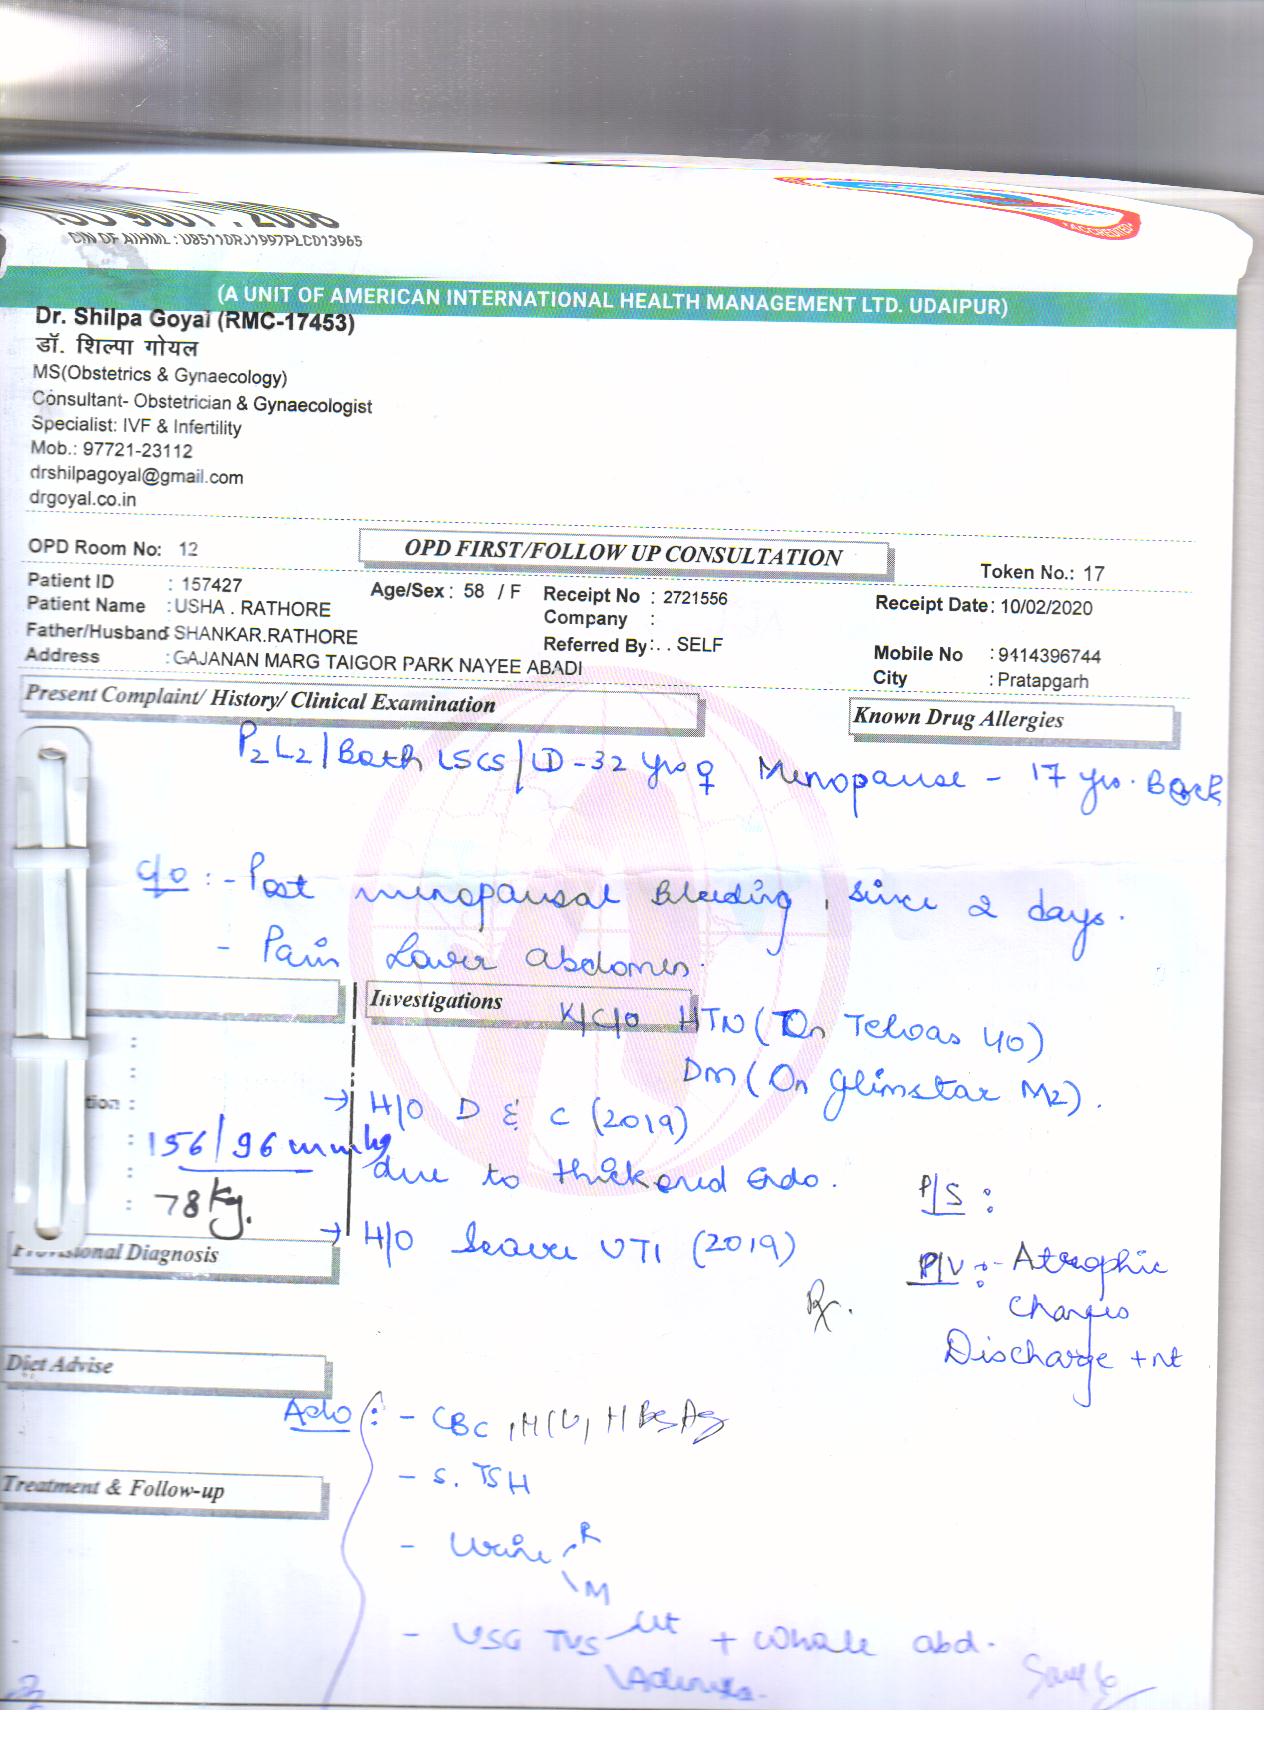 ISO 9001 : 2008
CIN OF AIHML : U85110RJ1997PLC013965
ACCREDITED
(A UNIT OF AMERICAN INTERNATIONAL HEALTH MANAGEMENT LTD. UDAIPUR)
Dr. Shilpa Goyal (RMC-17453)
डॉ. शिल्पा गोयल
MS(Obstetrics & Gynaecology)
Consultant- Obstetrician & Gynaecologist
Specialist: IVF & Infertility
Mob.: 97721-23112
drshilpagoyal@gmail.com
drgoyal.co.in
OPD Room No: 12 OPD FIRST/FOLLOW UP CONSULTATION Token No.: 17
Patient ID : 157427 Age/Sex : 58 / F Receipt No : 2721556 Receipt Date: 10/02/2020
Patient Name : USHA . RATHORE Company :
Father/Husband: SHANKAR.RATHORE Referred By: . . SELF Mobile No : 9414396744
Address : GAJANAN MARG TAIGOR PARK NAYEE ABADI City : Pratapgarh
Present Complaint/ History/ Clinical Examination Known Drug Allergies
P2L2/Both LSCS/LD-32 yrs ♀ Menopause - 17 yrs. Back
C/o :- Post menopausal Bleeding, since 2 days.
- Pain Lower abdomen.
Investigations
K/C/O HTN (On Telvas 40)
DM (On Glimstar M2).
→ H/O D & C (2019)
due to thickened Endo.
tion :
: 156/96 mmhg
: 78 Kg.
P/S :
→ H/O Severe UTI (2019)
Provisional Diagnosis
P/V :- Atrophic
changes
Discharge +nt
Rx.
Diet Advise
Adv :- CBC, HIV, HBsAg
- S. TSH
Treatment & Follow-up
- Urine R
M
- USG TVS Ut + Whole abd.
Adnexa.